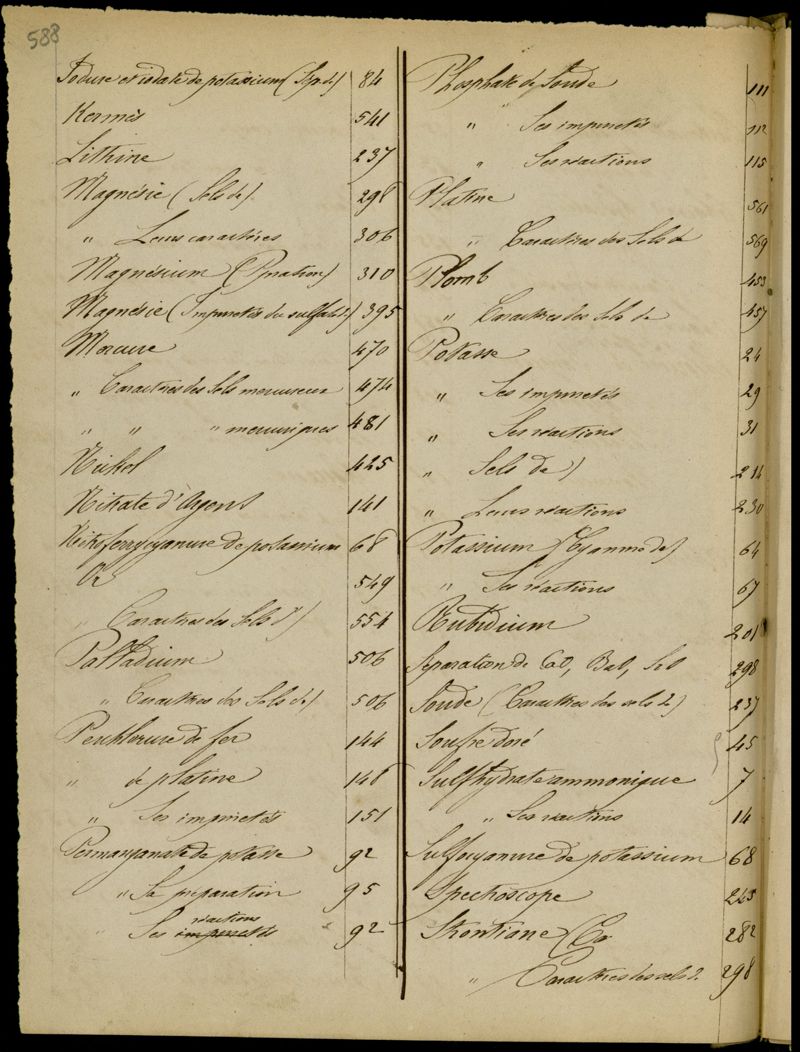 588
Iodure et iodate de potassium (Sép. de) 84
Kermès 541
Lithine 237
Magnésie (Sels de) 298
" Leurs caractères 306
Magnésium (Ppration) 310
Magnésie (Impuretés du sulfate de) 395
Mercure 470
" Caractres des Sels mercureux 474
" " " mercuriques 481
Nickel 425
Nitrate d'Argent 141
Nitroferrycyanure de potassium 68
Or 549
" Caractres des Sels d') 554
Palladium 506
" Caractres des Sels de) 506
Perchlorure de fer 144
" de platine 148
" Ses impuretés 151
Permanganate de potasse 92
" Sa préparation 95
" Ses réactions 92
Phosphate de Soude 111
" Ses impuretés 112
" Ses réactions 115
Platine 561
" Caractres des Sels de 569
Plomb 453
" Caractres des Sels de 457
Potasse 24
" Ses impuretés 29
" Ses réactions 31
" Sels de) 214
" Leurs réactions 230
Potassium (Cyanure de) 64
" Ses réactions 67
Rubidium 201
Séparation de CaO, BaO, SrO 298
Soude (Caractres des sels de) 237
Soufre doré 45
Sulfhydrate ammonique 7
" Ses réactions 14
Sulfocyanure de potassium 68
Spectroscope 245
Strontiane 282
" Caractres des sels de 298